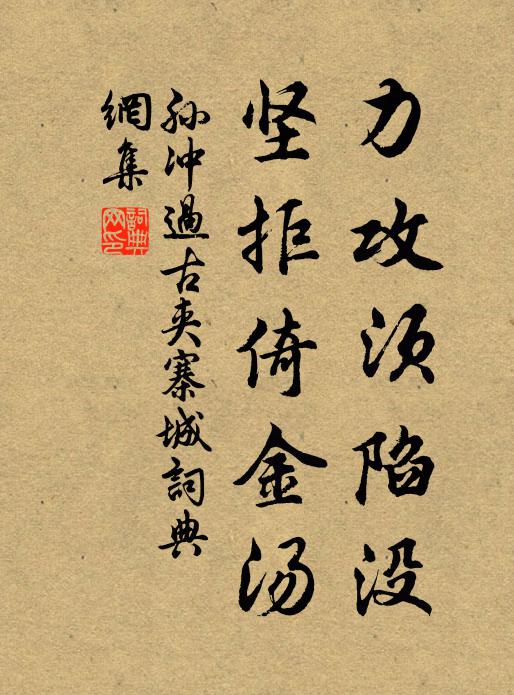 力攻须陷没
坚拒倚金汤
孙冲過古夹寨城詞典
網集
詞典网印